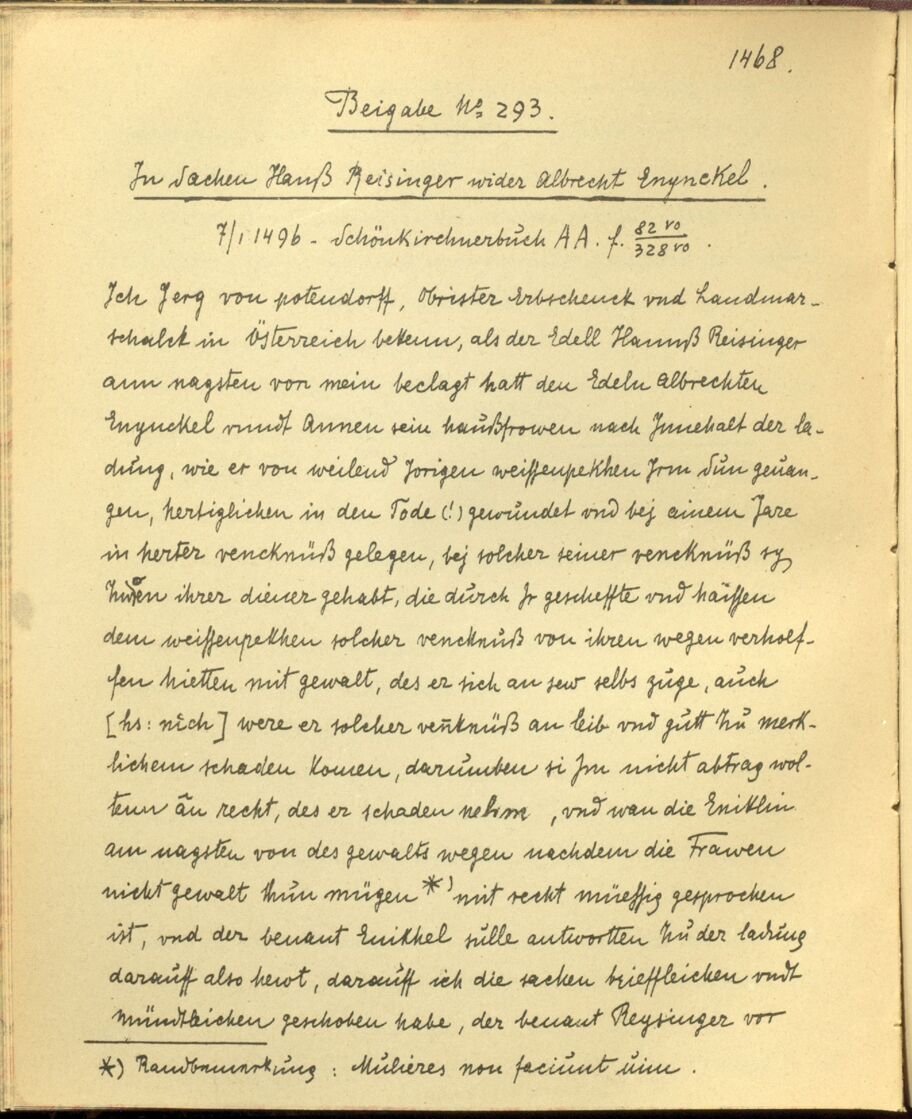 1468.
Beigabe No 293.
In Sachen Hanß Reisinger wider Albrecht Enynckel.
7/1 1496 - Schönkirchnerbuch AA. f. 82 vo / 328 vo.
Ich Jerg von potendorff, Obrister Erbschenck vnd Landmar-
schalck in Österreich bekenn, als der Edell Hannß Reisinger
ann nagsten vor mein beclagt hatt den Edeln Albrechten
Enynckel vnndt Annen sein haußfrowen nach Innehalt der la-
dung, wie er von weilend Jorigen weissenpekhen Irm Sun geuan-
gen, hertiglichen in den Tode (!) gewundet vnd bej ainem Jare
in herter vencknüß gelegen, bej solcher seiner vencknüß sy
ihrer diener gehabt, die durch Ir gescheffte vnd haissen
dem weissenpekhen solcher vencknuß von ihren wegen verholf-
fen hietten mit gewalt, des er sich an sew selbs zuge, auch
[hs: nich] were er solcher venknüß an leib vnd gutt zu merk-
lichem schaden komen, darumben si Im nicht abtrag wol-
tenn ân recht, des er schaden nehme, vnd wan die Eniklin
am nagsten von des gewalts wegen nachdem die Frawen
nicht gewalt thun mügen *) mit recht müessig gesprochen
ist, vnd der benant Enikhel sulle antwortten zu der ladung
darauff also hewt, darauff ich die sachen brieffleichen vndt
mündtleichen geschoben habe, der benant Reysinger vor
*) Randbemerkung: Mulieres non faciunt uim.